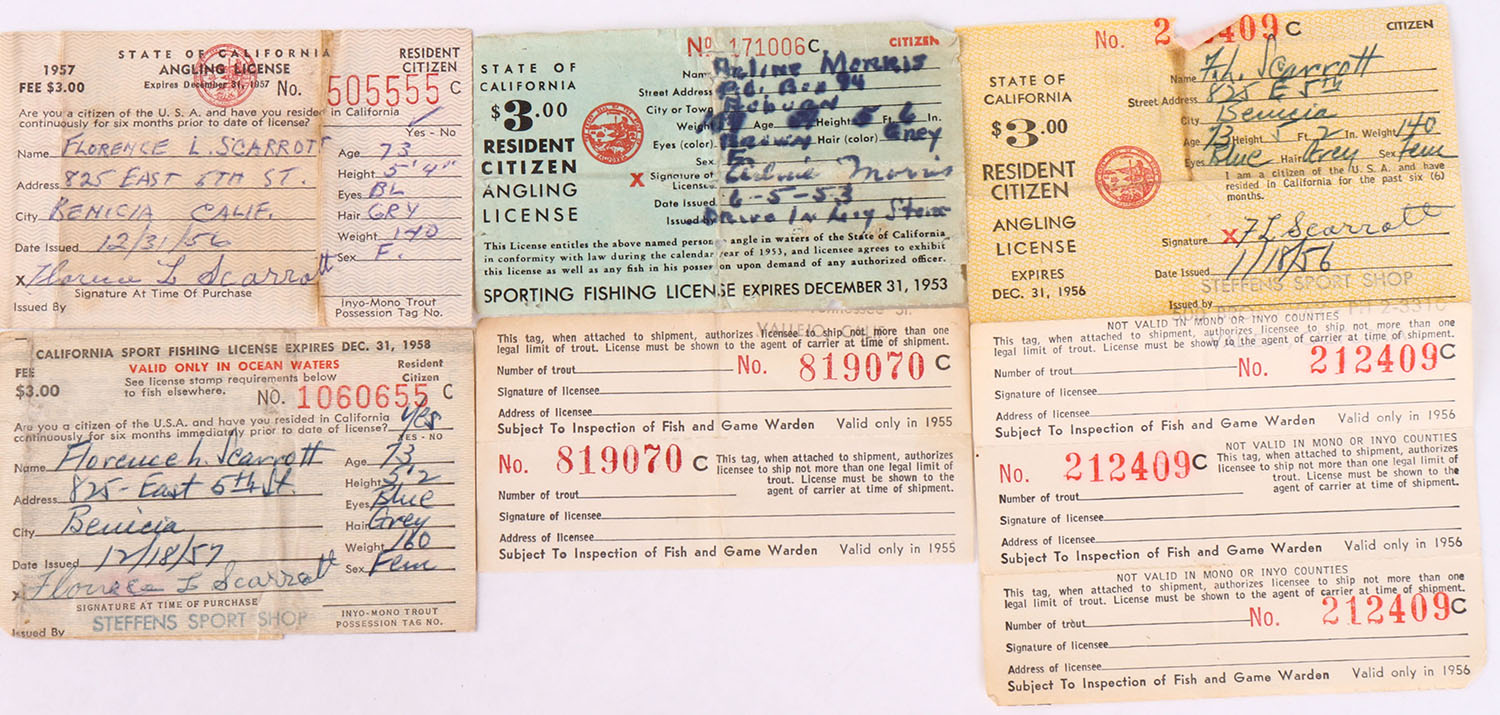 STATE OF CALIFORNIA
1957 ANGLING LICENSE RESIDENT CITIZEN
FEE $3.00 Expires December 31, 1957 No. 505555 C
Are you a citizen of the U.S.A. and have you resided in California
continuously for six months prior to date of license? Yes - No
Name FLORENCE L. SCARROTT Age 73
Height 5' 4"
Address 825 EAST 5TH ST. Eyes BL
Hair GRY
City BENICIA CALIF. Weight 140
Date Issued 12/31/56 Sex F.
X Florence L Scarrott
Signature At Time Of Purchase
Issued By
Inyo-Mono Trout
Possession Tag No.
CALIFORNIA SPORT FISHING LICENSE EXPIRES DEC. 31, 1958
FEE $3.00 VALID ONLY IN OCEAN WATERS Resident Citizen
See license stamp requirements below
to fish elsewhere. NO. 1060655 C
Are you a citizen of the U.S.A. and have you resided in California Yes
continuously for six months immediately prior to date of license? YES - NO
Name Florence L. Scarrott Age 73
Height 5'2
Address 825 - East 5th St. Eyes Blue
Hair Grey
City Benicia Weight 160
Date Issued 12/18/57 Sex Fem
X Florence L Scarrott
SIGNATURE AT TIME OF PURCHASE
Issued By STEFFENS SPORT SHOP
INYO-MONO TROUT
POSSESSION TAG NO.
No 171006 C CITIZEN
STATE OF
CALIFORNIA
$3.00
RESIDENT
CITIZEN
ANGLING
LICENSE
Name Arline Morris
Street Address P.O. Box 94
City or Town Auburn
Weight Age Height 5 Ft. 6 In.
Eyes (color) Brown Hair (color) Grey
Sex F
X Signature of Licensee Arline Morris
Date Issued 6-5-53
Issued by Drive In Liq Store
This License entitles the above named person angle in waters of the State of California
in conformity with law during the calendar year of 1953, and licensee agrees to exhibit
this license as well as any fish in his possession upon demand of any authorized officer.
SPORTING FISHING LICENSE EXPIRES DECEMBER 31, 1953
Tennessee St.
VALLEJO
This tag, when attached to shipment, authorizes licensee to ship not more than one
legal limit of trout. License must be shown to the agent of carrier at time of shipment.
Number of trout No. 819070 C
Signature of licensee
Address of licensee
Subject To Inspection of Fish and Game Warden Valid only in 1955
No. 819070 C This tag, when attached to shipment, authorizes
licensee to ship not more than one legal limit of
trout. License must be shown to the
agent of carrier at time of shipment.
Number of trout
Signature of licensee
Address of licensee
Subject To Inspection of Fish and Game Warden Valid only in 1955
No. 2 2409 C CITIZEN
STATE OF
CALIFORNIA
$3.00
RESIDENT
CITIZEN
ANGLING
LICENSE
EXPIRES
DEC. 31, 1956
Name F. L. Scarrott
Street Address 825 E 5th
City Benicia
73 Height 5 Ft. 2 In. Weight 140
Eyes Blue Hair Grey Sex Fem
I am a citizen of the U. S. A. and have
resided in California for the past six (6)
months.
Signature X F L Scarrott
Date Issued 1/18/56
STEFFENS SPORT SHOP
Issued by
NOT VALID IN MONO OR INYO COUNTIES
This tag, when attached to shipment, authorizes licensee to ship not more than one
legal limit of trout. License must be shown to the agent of carrier at time of shipment.
Number of trout No. 212409 C
Signature of licensee
Address of licensee
Subject To Inspection of Fish and Game Warden Valid only in 1956
NOT VALID IN MONO OR INYO COUNTIES
No. 212409 C This tag, when attached to shipment, authorizes
licensee to ship not more than one legal limit of
trout. License must be shown to the
agent of carrier at time of shipment.
Number of trout
Signature of licensee
Address of licensee
Subject To Inspection of Fish and Game Warden Valid only in 1956
NOT VALID IN MONO OR INYO COUNTIES
This tag, when attached to shipment, authorizes licensee to ship not more than one
legal limit of trout. License must be shown to the agent of carrier at time of shipment.
Number of trout No. 212409 C
Signature of licensee
Address of licensee
Subject To Inspection of Fish and Game Warden Valid only in 1956